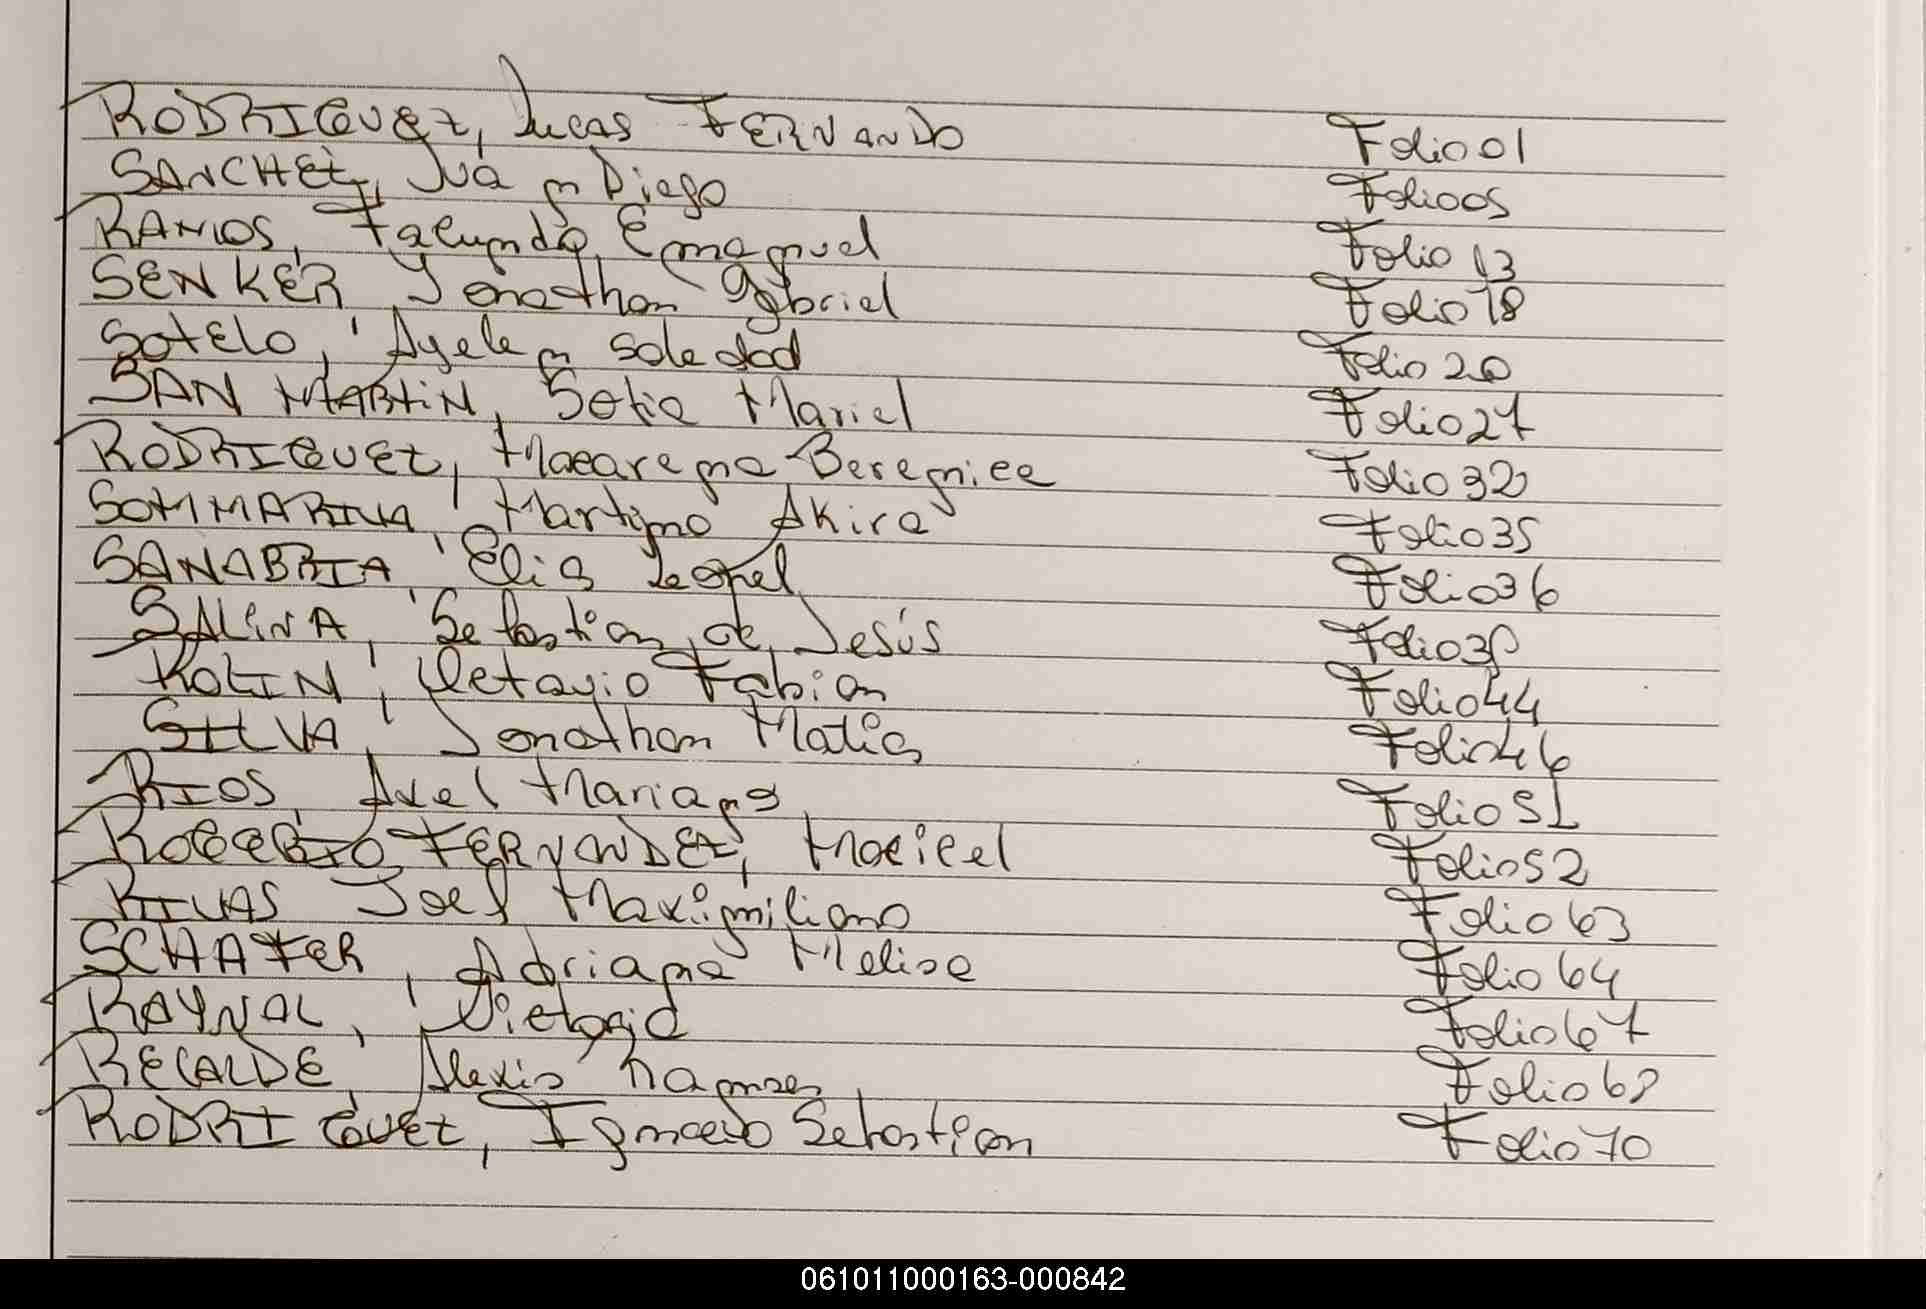 RODRIGUEZ, Lucas FERNANDO Folio 01
SANCHEZ, Juan Diego Folio 05
RAMOS, Facundo Emanuel Folio 13
SENKER Jonathan Gabriel Folio 18
SOTELO, Ayelen Soledad Folio 20
SAN MARTIN, Sofia Mariel Folio 27
RODRIGUEZ, Macarena Berenice Folio 32
SOMMARIVA, Martino Akira Folio 35
SANABRIA, Elias Leonel Folio 36
SALINA, Sebastian de Jesús Folio
ROLIN, Octavio Fabian Folio 44
SILVA, Jonathan Matias Folio 46
RIOS, Axel Mariano Folio 51
FERNANDEZ, Maciel Folio 52
RIVAS Joel Maximiliano Folio 63
SCHAFER, Adriana Melisa Folio 64
RAYNAL, Victoria Folio 67
RECALDE, Alexis Ramses Folio 68
RODRIGUEZ, Ignacio Sebastian Folio 70
061011000163-000842